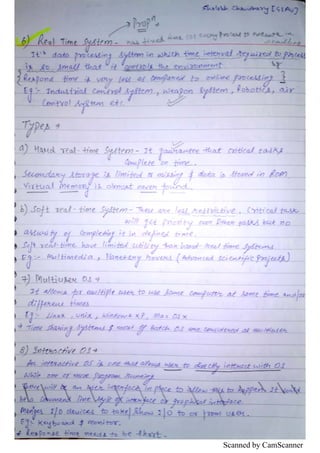 Shailesh Chaudhary [GTAV]
→ Propn
6) Real Time System - has fixed time for every process to execute in
It's data processing system in which time interval required to process
is so small that it controls the environment.
{ Response time is very less as compared to online processing }
Eg:- Industrial control system, weapon system, Robotics, air
Control System etc.
Types →
a) Hard real-time System - It guarantees that critical tasks
Complete on time.
Secondary storage is limited or missing & data is stored in ROM
Virtual memory is almost never found.
b) Soft real-time System - These are less restrictive. Critical task
will get priority over other tasks but no
assurity of completing it in defined time.
Soft real-time have limited utility than hard-real time systems
Eg:- Multimedia, Planetary rovers (Advanced Scientific Projects)
7) Multiuser OS →
It allows for multiple user to use same computer at same time and/or
different times
Eg:- Linux, Unix, windows XP, Mac OS X
→ Time Sharing Systems & most of batch OS are considered as multiuser
8) Interactive OS →
An interactive OS is one that allows user to directly interact with OS
while one or more program running.
There will be an user interface in place to allow this to happen. It could
be a command line style of interface or graphical interface.
Manages I/O devices to take/show I/O to or from user.
Eg:- Keyboard & monitor.
→ Response time needs to be short.
Scanned by CamScanner